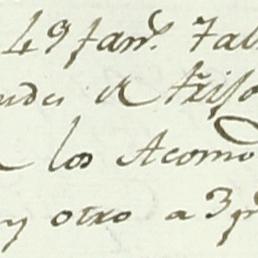 49 fan.s 7 al
de trigo
los Acomo
y otro a 3 p